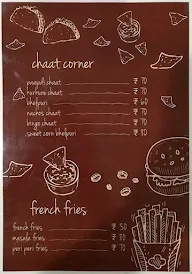 chaat corner
papdi chaat ₹ 70
turmuri chaat ₹ 70
bhelpuri ₹ 60
nachos chaat ₹ 70
bingo chaat ₹ 70
sweet corn bhelpuri ₹ 80
french fries
french fries ₹ 50
masala fries ₹ 70
peri peri fries ₹ 70